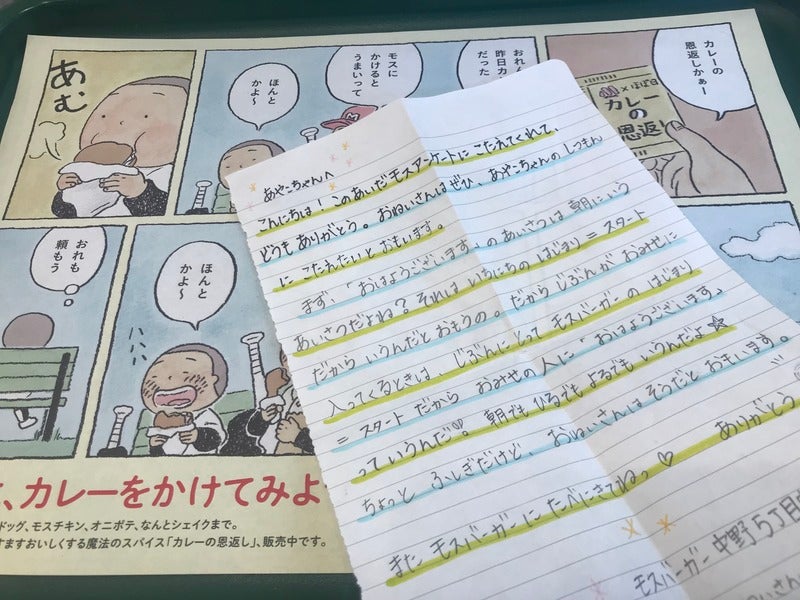 カレーの
恩返しかぁー
カレーの
恩返し
おれん
昨日カ
だった
モスに
かけると
うまいって
ほんと
かよ〜
あむ
ほんと
かよ〜
おれも
頼もう
、カレーをかけてみよ
ドッグ、モスチキン、オニポテ、なんとシェイクまで。
すますおいしくする魔法のスパイス「カレーの恩返し」、販売中です。
あやこちゃんへ
こんにちは！このあいだモスアンケートにこたえてくれて、
どうもありがとう。おねいさんはぜひ、あやこちゃんのしつもん
にこたえたいとおもいます。
まず、「おはようございます」のあいさつは朝にいう
あいさつだよね？それはいちにちのはじまり＝スタート
だからいうんだとおもうの。だからじぶんがおみせに
入ってくるときは、じぶんにとってモスバーガーのはじまり
＝スタートだからおみせの人に「おはようございます」
っていうんだ♡。朝でもひるでもよるでもいうんだよ☆
ちょっとふしぎだけど、おねいさんはそうだとおもいます。
またモスバーガーにたべにきてねっ♡ ありがとう
モスバーガー中野5丁目